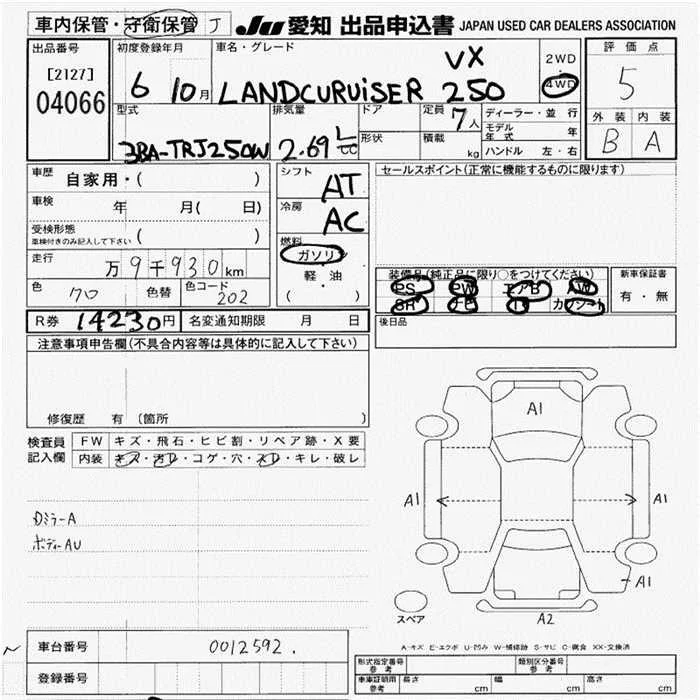 車内保管・守衛保管 J
JU 愛知 出品申込書 JAPAN USED CAR DEALERS ASSOCIATION
出品番号
[2127]
04066
初度登録年月
6 10月
車名・グレード
VX
LANDCURUiSER 250
2WD
・
4WD
評価点
5
外装 内装
B A
型式
3BA-TRJ250W
排気量
2.69 L
cc
ドア
形状
定員 7人
積載 kg
ディーラー・並行
モデル年式 年
ハンドル 左・右
車歴 自家用・( )
車検 年 月( 日)
受検形態
車検付きのみ記入して下さい ( )
走行 万9千930km
色 クロ 色替 色コード 202
シフト AT
冷房 AC
燃料
ガソリン
・
軽・油
( )
セールスポイント(正常に機能するものに限ります)
装備品(純正品に限り○をつけてください)
PS PW エアB AW
SR ナビ TV カワシート
新車保証書
有・無
後日品
R券 14230円 名変通知期限 月 日
注意事項申告欄(不具合内容等は具体的に記入して下さい)
修復歴 有 (箇所 )
検査員
記入欄
FW キズ・飛石・ヒビ割・リペア跡・X要
内装 キズ・汚レ・コゲ・穴・スレ・キレ・破レ
Dミラ-A
ボディーAU
A1
A1 A1
A1
A2
スペア
A-キズ E-エクボ U-凹み W-補修跡 S-サビ C-腐食 XX-交換済
車台番号 0012592.
登録番号
形式指定番号
参考
類別区分番号
参考
車庫証明用
参考
長さ cm 幅 cm 高さ cm